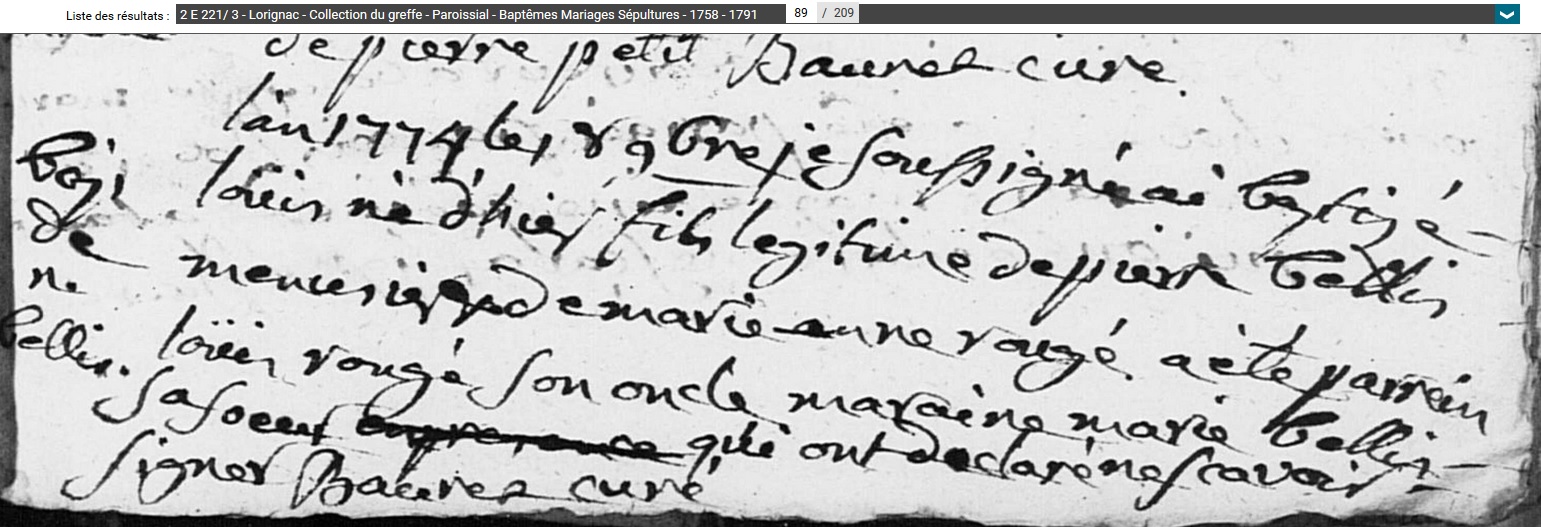 Liste des résultats : 2 E 221/ 3 - Lorignac - Collection du greffe - Paroissial - Baptêmes Mariages Sépultures - 1758 - 1791 89 / 209
de pierre petit Baurés curé
lan 1774 le 8 9bre je soussigné ai baptizé
loüis né d'hier fils legitime de pierre bellis
menuisier de marie anne rougé a été parrein
loüis rougé son oncle maraine marie bellis
sa soeur en presence qui ont declaré ne scavoir
signer Baurés curé
de
n.
bellis.